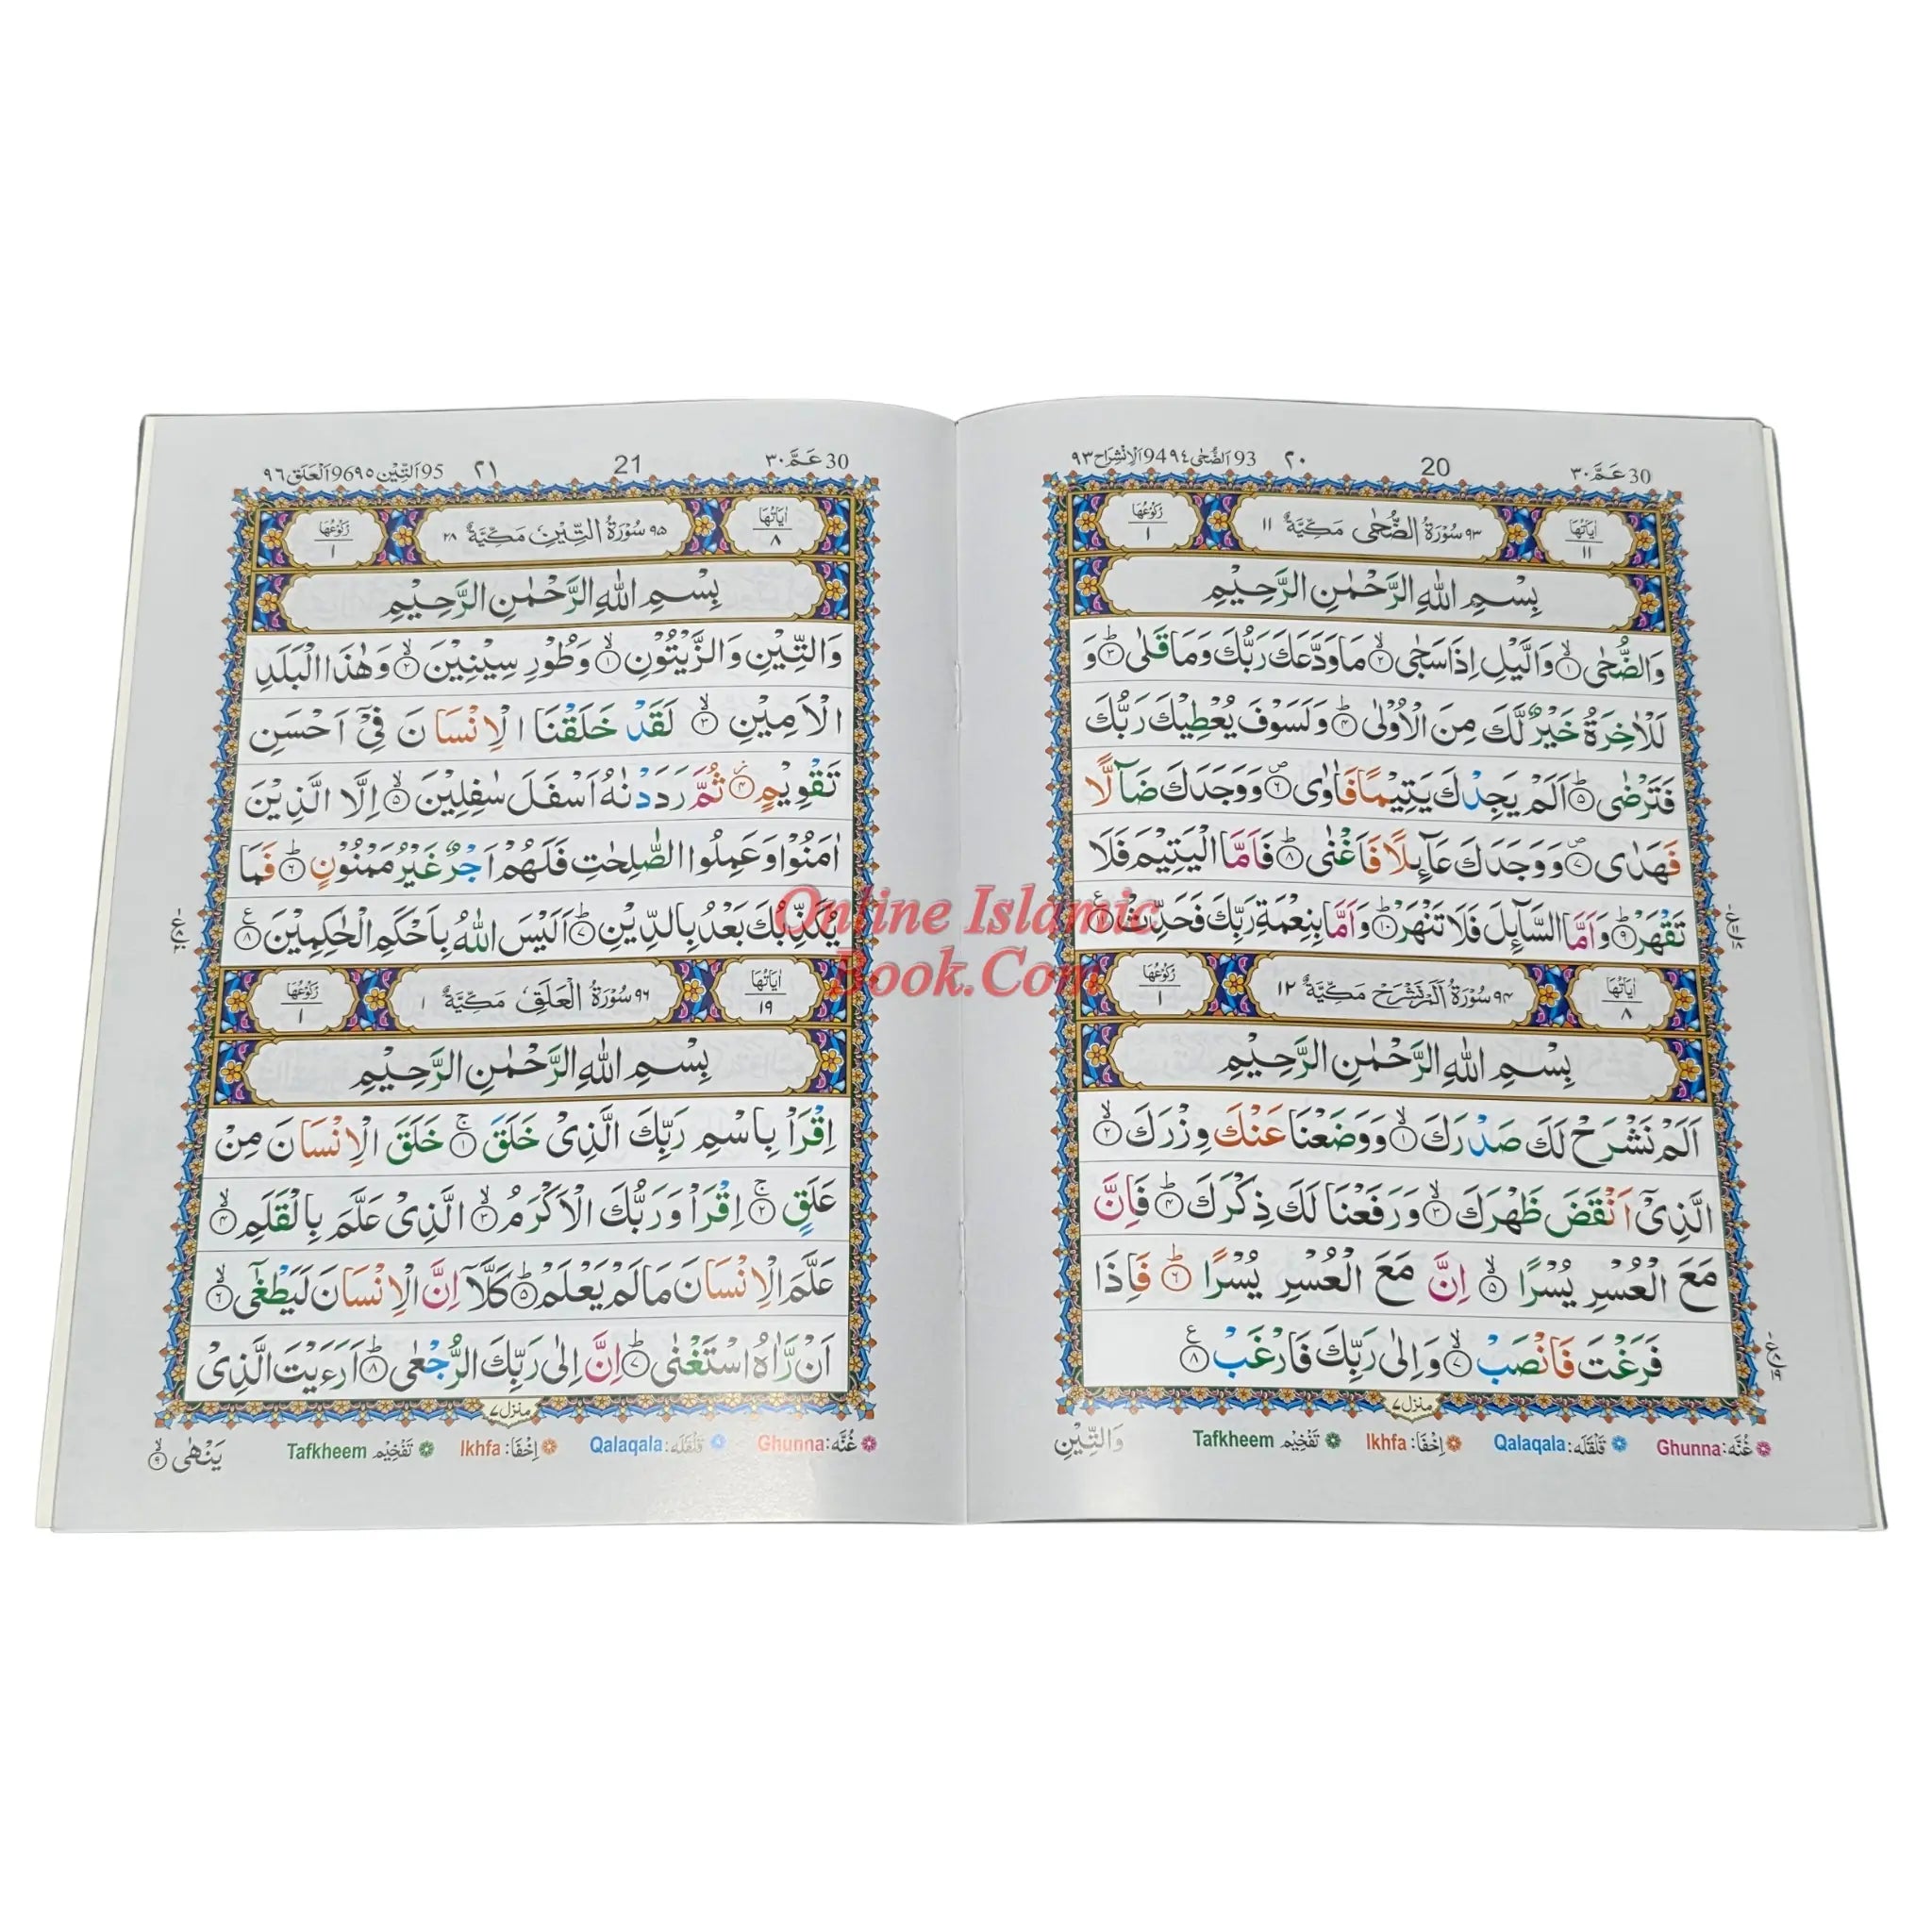 30 عَمَّ ٣٠
20
٢٠
93 اَلضُّحٰى ٩٤ 94 اَلْاِنْشِرَاح ٩٣
اٰيَاتُهَا ١١
٩٣ سُوْرَةُ الضُّحٰى مَكِّيَّةٌ ١١
رَكُوْعُهَا ١
بِسْمِ اللّٰهِ الرَّحْمٰنِ الرَّحِيْمِ
وَالضُّحٰى ۙ‏﴿١﴾ وَالَّيْلِ اِذَا سَجٰى ۙ‏﴿٢﴾ مَا وَدَّعَكَ رَبُّكَ وَمَا قَلٰى ؕ‏﴿٣﴾ وَ
لَلْاٰخِرَةُ خَيْرٌ لَّكَ مِنَ الْاُوْلٰى ؕ‏﴿٤﴾ وَلَسَوْفَ يُعْطِيْكَ رَبُّكَ
فَتَرْضٰى ؕ‏﴿٥﴾ اَلَمْ يَجِدْكَ يَتِيْمًا فَاٰوٰى ۪‏﴿٦﴾ وَوَجَدَكَ ضَآلًّا
فَهَدٰى ۪‏﴿٧﴾ وَوَجَدَكَ عَآئِلًا فَاَغْنٰى ؕ‏﴿٨﴾ فَاَمَّا الْيَتِيْمَ فَلَا
تَقْهَرْ ؕ‏﴿٩﴾ وَاَمَّا السَّآئِلَ فَلَا تَنْهَرْ ؕ‏﴿١٠﴾ وَاَمَّا بِنِعْمَةِ رَبِّكَ فَحَدِّثْ ﴿١١﴾
اٰيَاتُهَا ٨
٩٤ سُوْرَةُ اَلَمْ نَشْرَحْ مَكِّيَّةٌ ١٢
رَكُوْعُهَا ١
بِسْمِ اللّٰهِ الرَّحْمٰنِ الرَّحِيْمِ
اَلَمْ نَشْرَحْ لَكَ صَدْرَكَ ۙ‏﴿١﴾ وَوَضَعْنَا عَنْكَ وِزْرَكَ ۙ‏﴿٢﴾
الَّذِيْٓ اَنْقَضَ ظَهْرَكَ ۙ‏﴿٣﴾ وَرَفَعْنَا لَكَ ذِكْرَكَ ؕ‏﴿٤﴾ فَاِنَّ
مَعَ الْعُسْرِ يُسْرًا ۙ‏﴿٥﴾ اِنَّ مَعَ الْعُسْرِ يُسْرًا ؕ‏﴿٦﴾ فَاِذَا
فَرَغْتَ فَانْصَبْ ۙ‏﴿٧﴾ وَاِلٰى رَبِّكَ فَارْغَبْ ﴿٨﴾
منزل ٧
Ghunna: غُنَّه Qalaqala: قَلْقَلَه Ikhfa: اِخْفَا Tafkheem تَفْخِيْم
وَالتِّيْنِ
30 عَمَّ ٣٠
21
٢١
95 اَلتِّيْن ٩٥ 96 اَلْعَلَق ٩٦
اٰيَاتُهَا ٨
٩٥ سُوْرَةُ التِّيْنِ مَكِّيَّةٌ ٢٨
رَكُوْعُهَا ١
بِسْمِ اللّٰهِ الرَّحْمٰنِ الرَّحِيْمِ
وَالتِّيْنِ وَالزَّيْتُوْنِ ۙ‏﴿١﴾ وَطُوْرِ سِيْنِيْنَ ۙ‏﴿٢﴾ وَهٰذَا الْبَلَدِ
الْاَمِيْنِ ۙ‏﴿٣﴾ لَقَدْ خَلَقْنَا الْاِنْسَانَ فِيْٓ اَحْسَنِ
تَقْوِيْمٍ ؗ‏﴿٤﴾ ثُمَّ رَدَدْنٰهُ اَسْفَلَ سٰفِلِيْنَ ۙ‏﴿٥﴾ اِلَّا الَّذِيْنَ
اٰمَنُوْا وَعَمِلُوا الصّٰلِحٰتِ فَلَهُمْ اَجْرٌ غَيْرُ مَمْنُوْنٍ ؕ‏﴿٦﴾ فَمَا
يُكَذِّبُكَ بَعْدُ بِالدِّيْنِ ؕ‏﴿٧﴾ اَلَيْسَ اللّٰهُ بِاَحْكَمِ الْحٰكِمِيْنَ ﴿٨﴾
اٰيَاتُهَا ١٩
٩٦ سُوْرَةُ الْعَلَقِ مَكِّيَّةٌ ١
رَكُوْعُهَا ١
بِسْمِ اللّٰهِ الرَّحْمٰنِ الرَّحِيْمِ
اِقْرَاْ بِاسْمِ رَبِّكَ الَّذِيْ خَلَقَ ۚ‏﴿١﴾ خَلَقَ الْاِنْسَانَ مِنْ
عَلَقٍ ۚ‏﴿٢﴾ اِقْرَاْ وَرَبُّكَ الْاَكْرَمُ ۙ‏﴿٣﴾ الَّذِيْ عَلَّمَ بِالْقَلَمِ ۙ‏﴿٤﴾
عَلَّمَ الْاِنْسَانَ مَا لَمْ يَعْلَمْ ؕ‏﴿٥﴾ كَلَّآ اِنَّ الْاِنْسَانَ لَيَطْغٰٓى ۙ‏﴿٦﴾
اَنْ رَّاٰهُ اسْتَغْنٰى ؕ‏﴿٧﴾ اِنَّ اِلٰى رَبِّكَ الرُّجْعٰى ؕ‏﴿٨﴾ اَرَءَيْتَ الَّذِيْ
منزل ٧
Ghunna: غُنَّه Qalaqala: قَلْقَلَه Ikhfa: اِخْفَا Tafkheem تَفْخِيْم
يَنْهٰى ۙ‏﴿٩﴾
Online Islamic
Book.Com